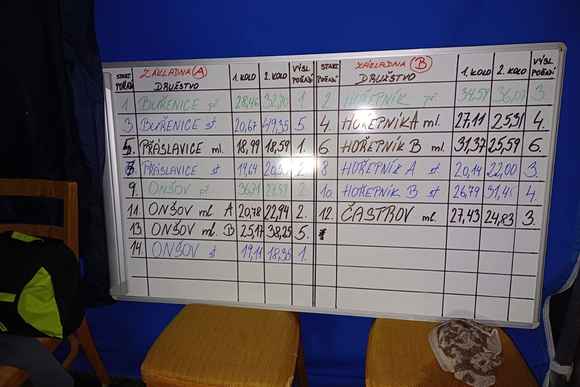 START. POŘAD. ZÁKLADNA (A) DRUŽSTVO 1. KOLO 2. KOLO VÝSL. POŘADÍ START. POŘADÍ ZÁKLADNA (B) DRUŽSTVO 1. KOLO 2. KOLO VÝSL. POŘADÍ
1. BUŘENICE 28,46 1 2. HOŘEPNÍK 34,59 3.
3. BUŘENICE st 20,67 49,35 5 4. HOŘEPNÍK A ml. 27,11 25,31 4.
5. PŘÁSLAVICE ml. 18,99 18,59 1. 6 HOŘEPNÍK B ml. 31,37 25,59 6.
7. PŘÁSLAVICE st 19,64 2 8 HOŘEPNÍK A st 20,14 22,00 3.
9. ONŠOV 2 10. HOŘEPNÍK B st 26,79 31,41 4.
11. ONŠOV ml A 20,78 22,94 2. 12. ČASTROV ml. 27,43 24,83 3.
13 ONŠOV ml B 25,17 38,25 5.
14. ONŠOV st 19,11 18,36 1.